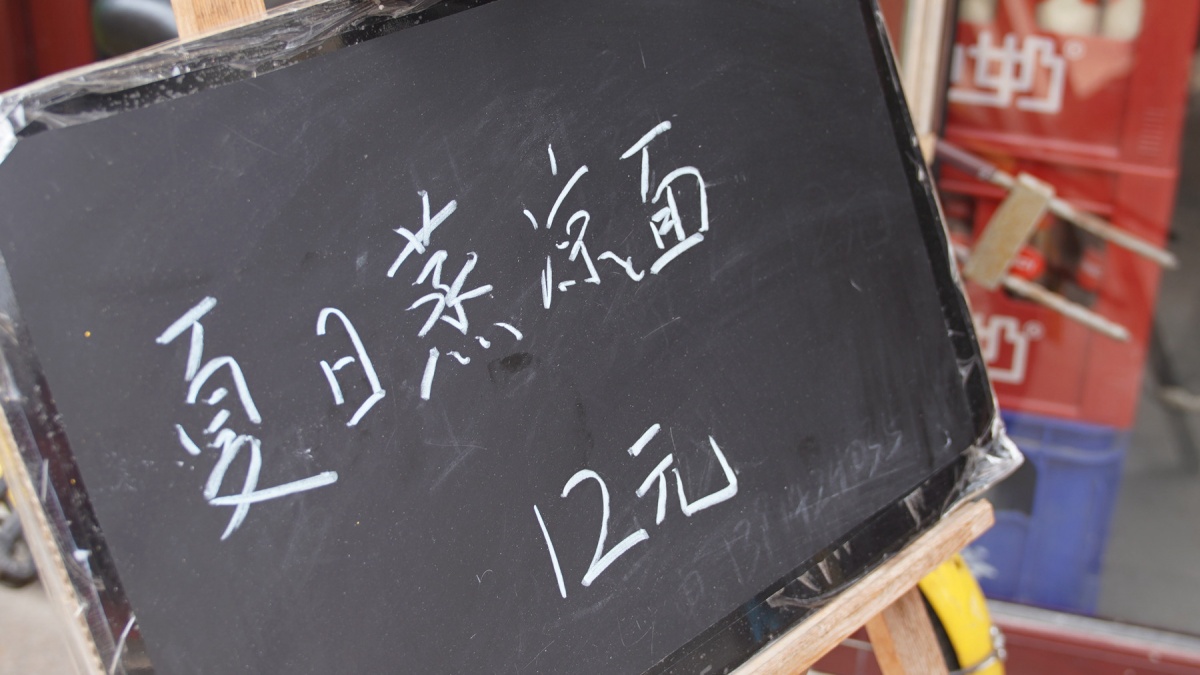 夏日蒸凉面
12元
奶
奶